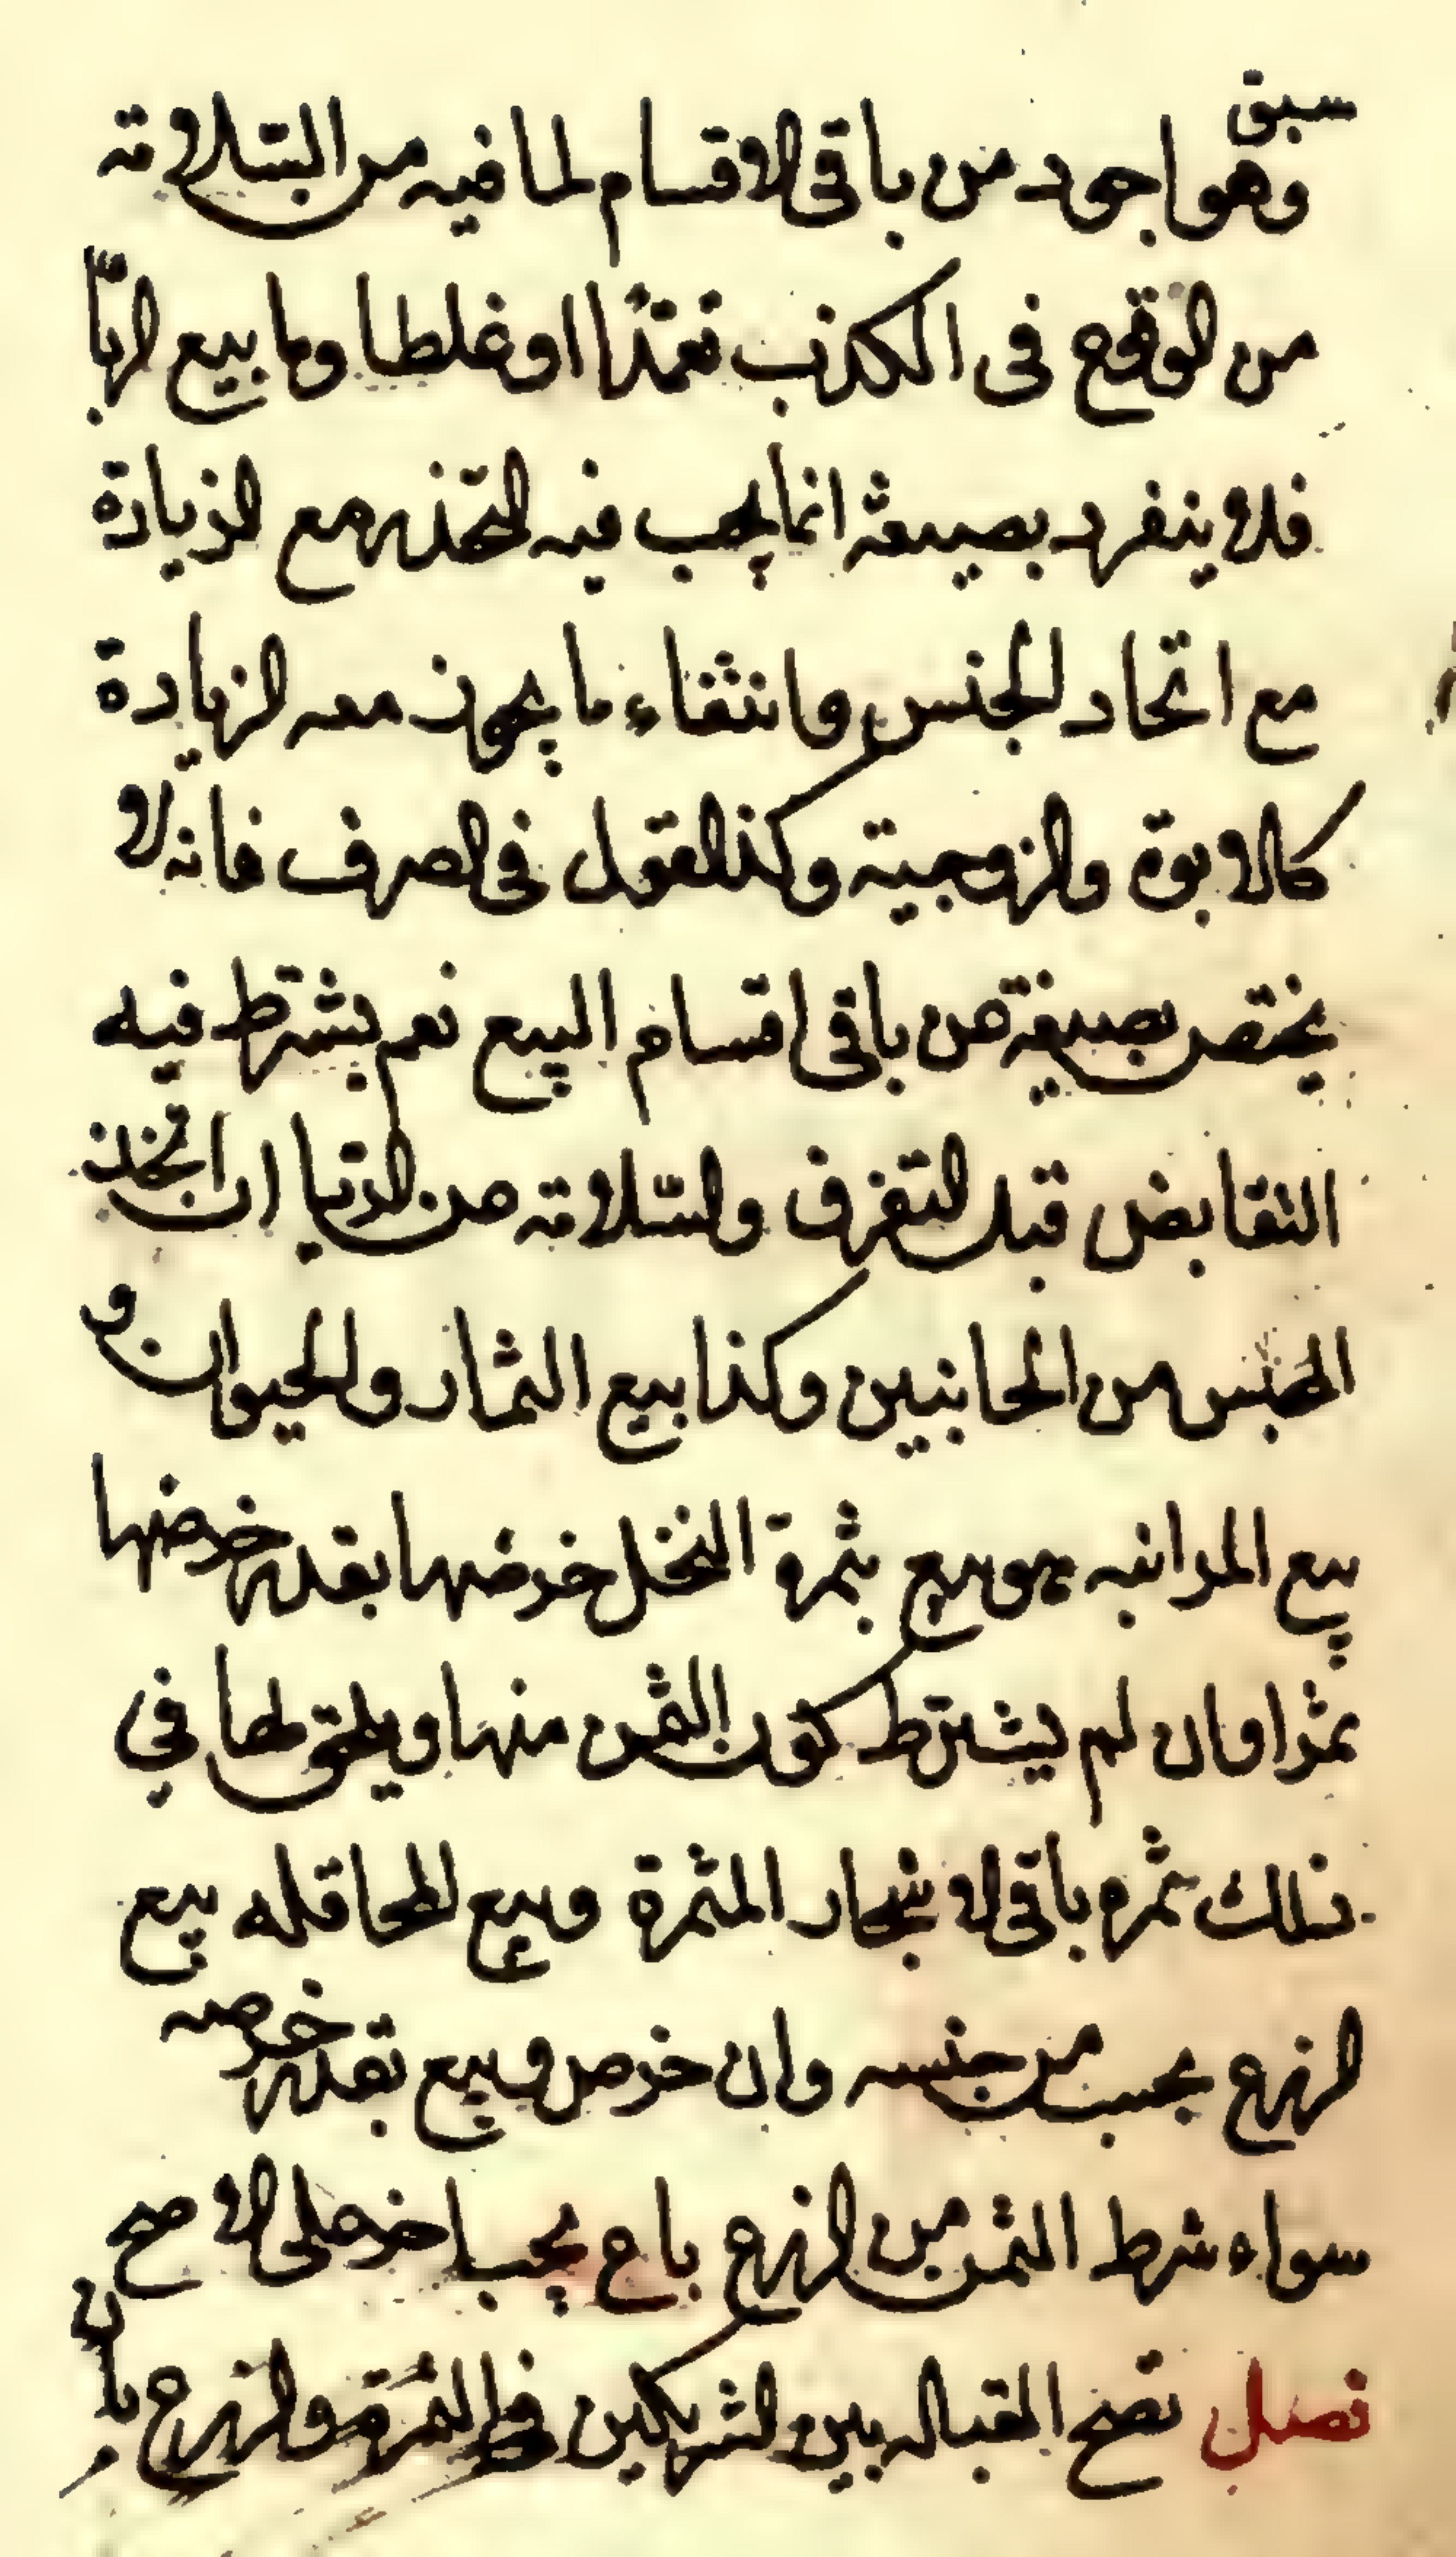 سبق
وهو اجود من باقى الاقسام لما فيه من السّلامة
من الوقوع فى الكذب تعمّدًا او غلطا واما بيع الربا
فلا ينفرد بصيغة انما يجب فيه التحذر مع الزيادة
مع اتحاد الجنس وانتفاء ما يجوز معه الزيادة
كالابوة والزوجية وكذا القول فى الصرف فانه لا
يختص بصيغة من باقى اقسام البيع نعم يشترط فيه
التقابض قبل التفرق والسّلامة من الربا ان اتحد
الجنس من الجانبين وكذا بيع الثمار والحيوان و
بيع المزابنه هو بيع ثمرة النخل خرصها بقدر خرصها
تمرا وان لم يشترط كون الثمن منها ويلحق لها في
ذلك ثمره باقى الاشجار المثمرة وبيع المحاقله بيع
الزرع بحب من جنسه وان خرص وبيع بقدر خرصه
سواء شرط الثمن من الزرع باع بحب اخر على الاصح
فصل تصح القباله بين الشريكين فى الثمرة والزرع بان